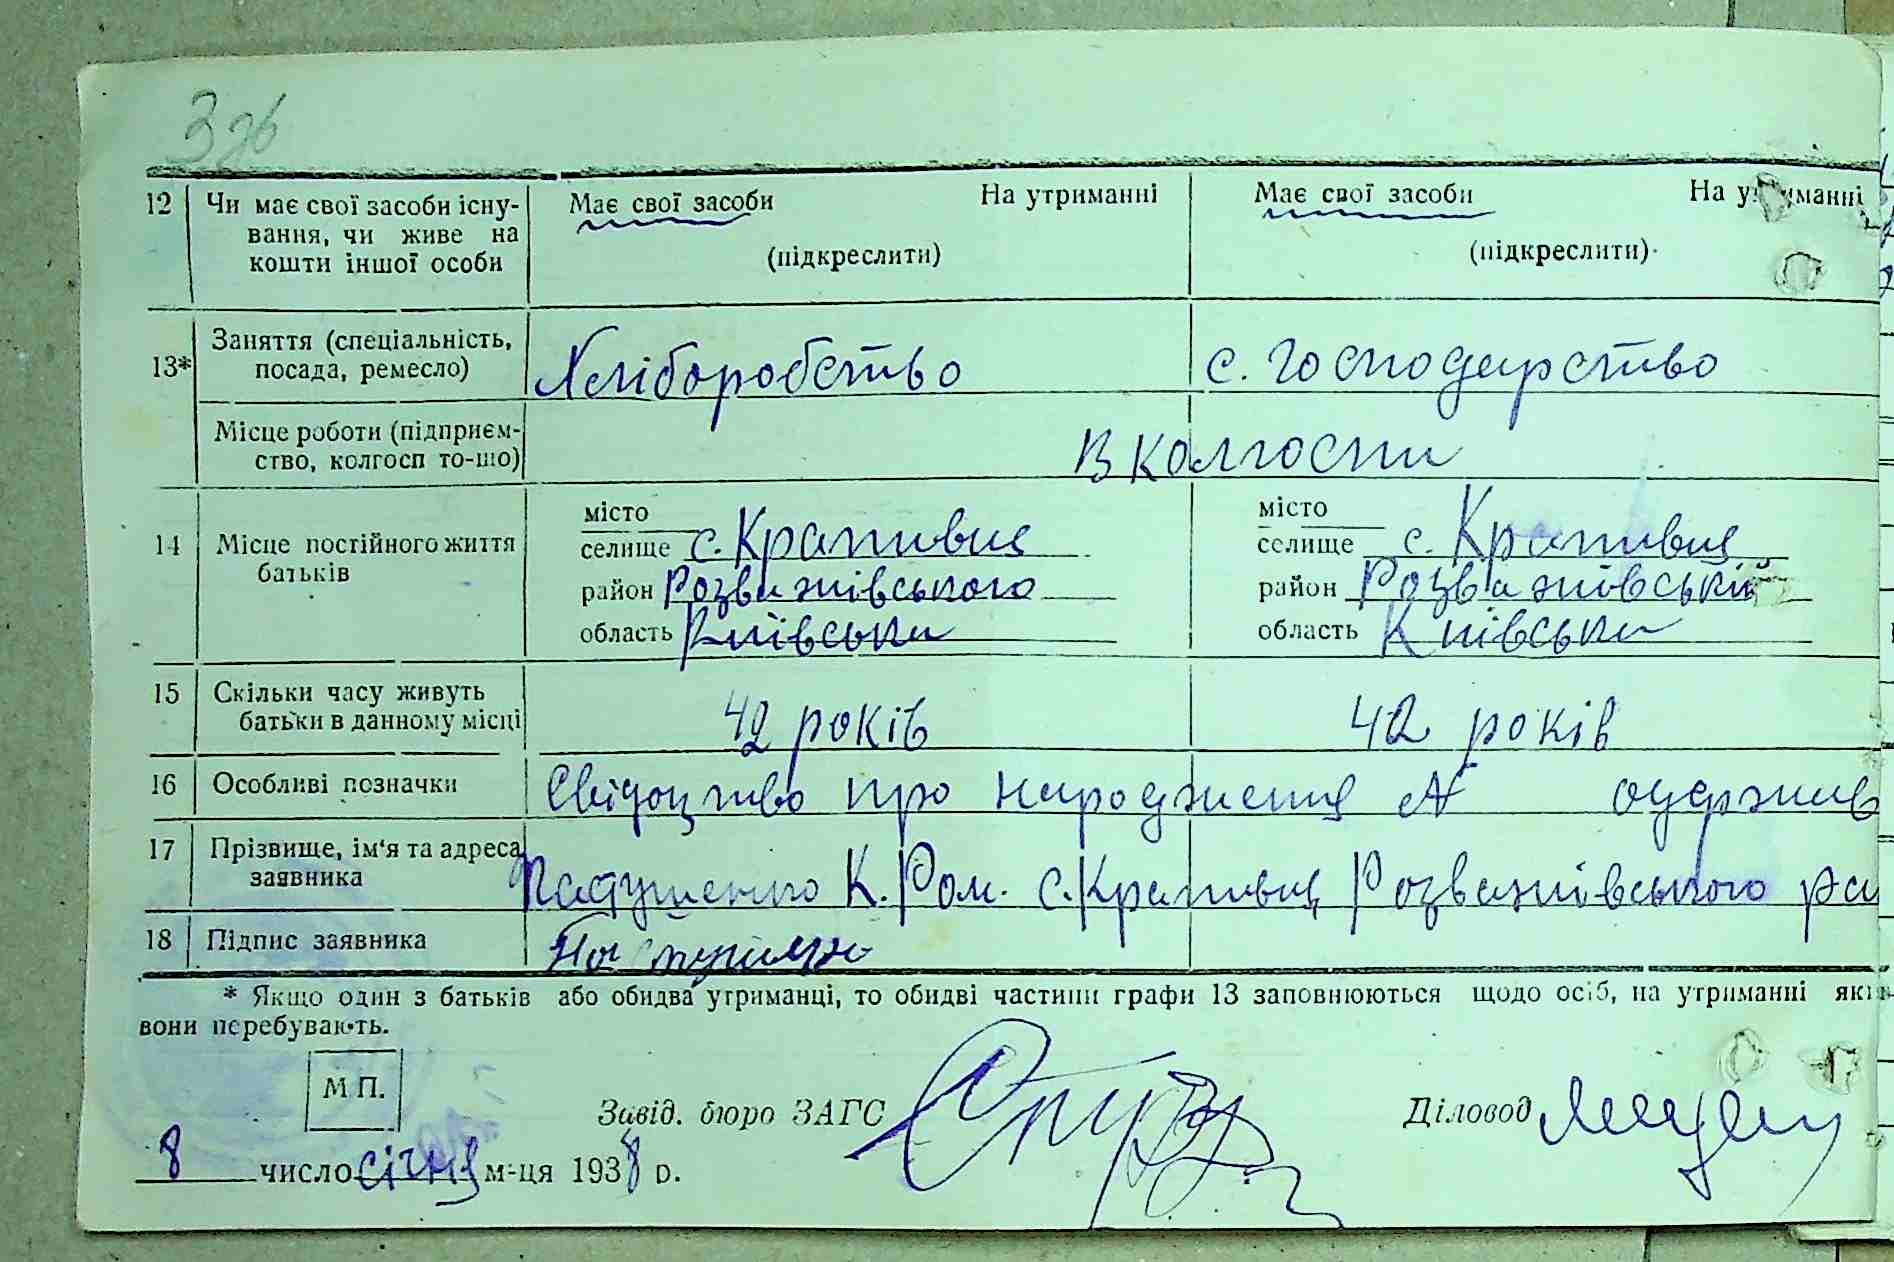 3 зв
12 Чи має свої засоби існу- Має свої засоби На утриманні Має свої засоби На утриманні
вання, чи живе на (підкреслити) (підкреслити)
кошти іншої особи
13* Заняття (спеціальність, посада, ремесло) Хліборобство с. господарство
Місце роботи (підприєм-
ство, колгосп то-що) В колгоспи
14 Місце постійного життя батьків
місто місто
селище с. Крапивня селище с. Крапивня
район Розважівського район Розважівській
область Київська область Київська
15 Скільки часу живуть
батьки в данному місці 42 років 42 років
16 Особливі позначки Свідоцтво про народження № одержив
17 Прізвище, ім'я та адреса
заявника К. Ром. с. Крапивня Розважівського ра
18 Підпис заявника
* Якщо один з батьків або обидва утриманці, то обидві частини графи 13 заповнюються щодо осіб, на утриманні яких
вони перебувають.
М П.
Завід. бюро ЗАГС Діловод
8 число січня м-ця 1938 р.